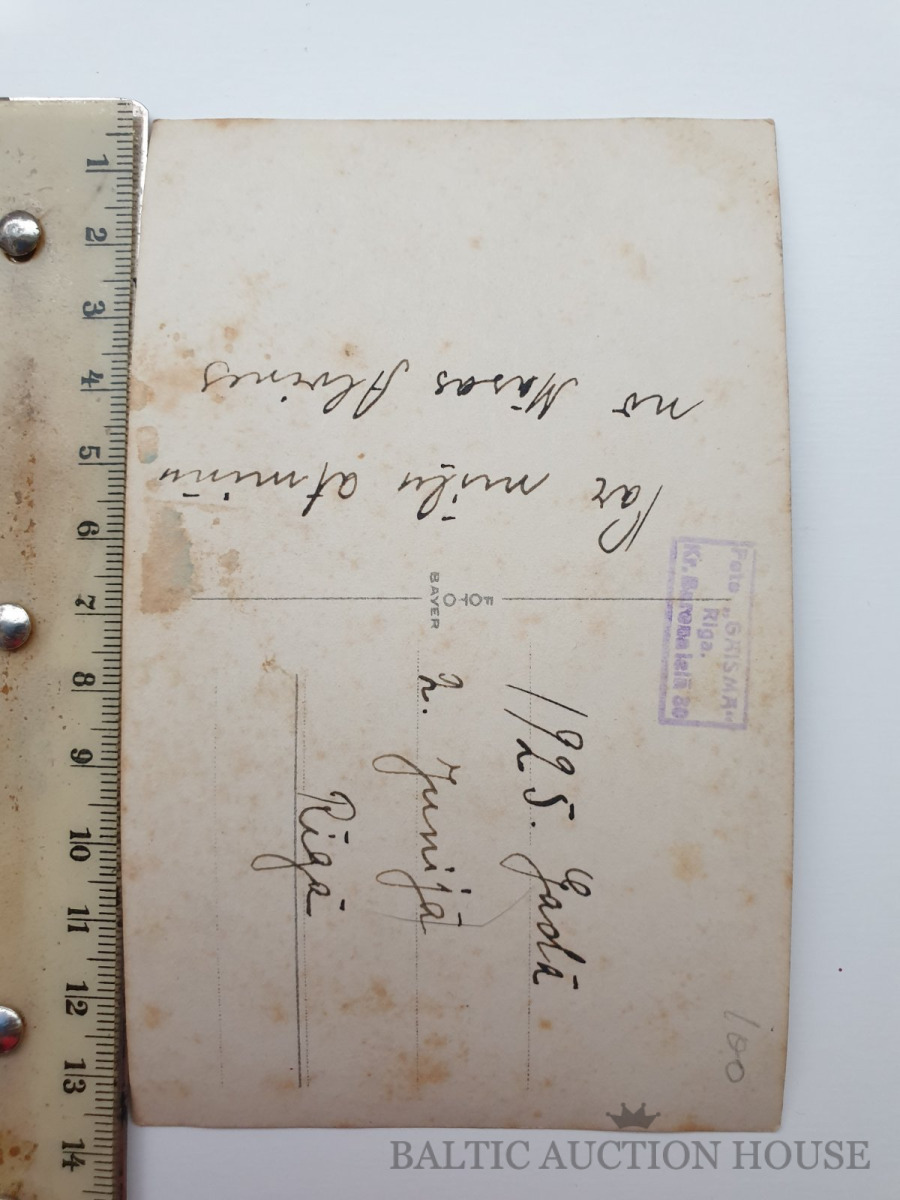 Par mīļu atmiņu
no Māsas Alvines
Foto „GAISMA“
Riga.
Kr. Barona ielā 30
BAYER
FOTO
1925. Gadā
2. Junijā
Rīgā
100
1 2 3 4 5 6 7 8 9 10 11 12 13 14
BALTIC AUCTION HOUSE